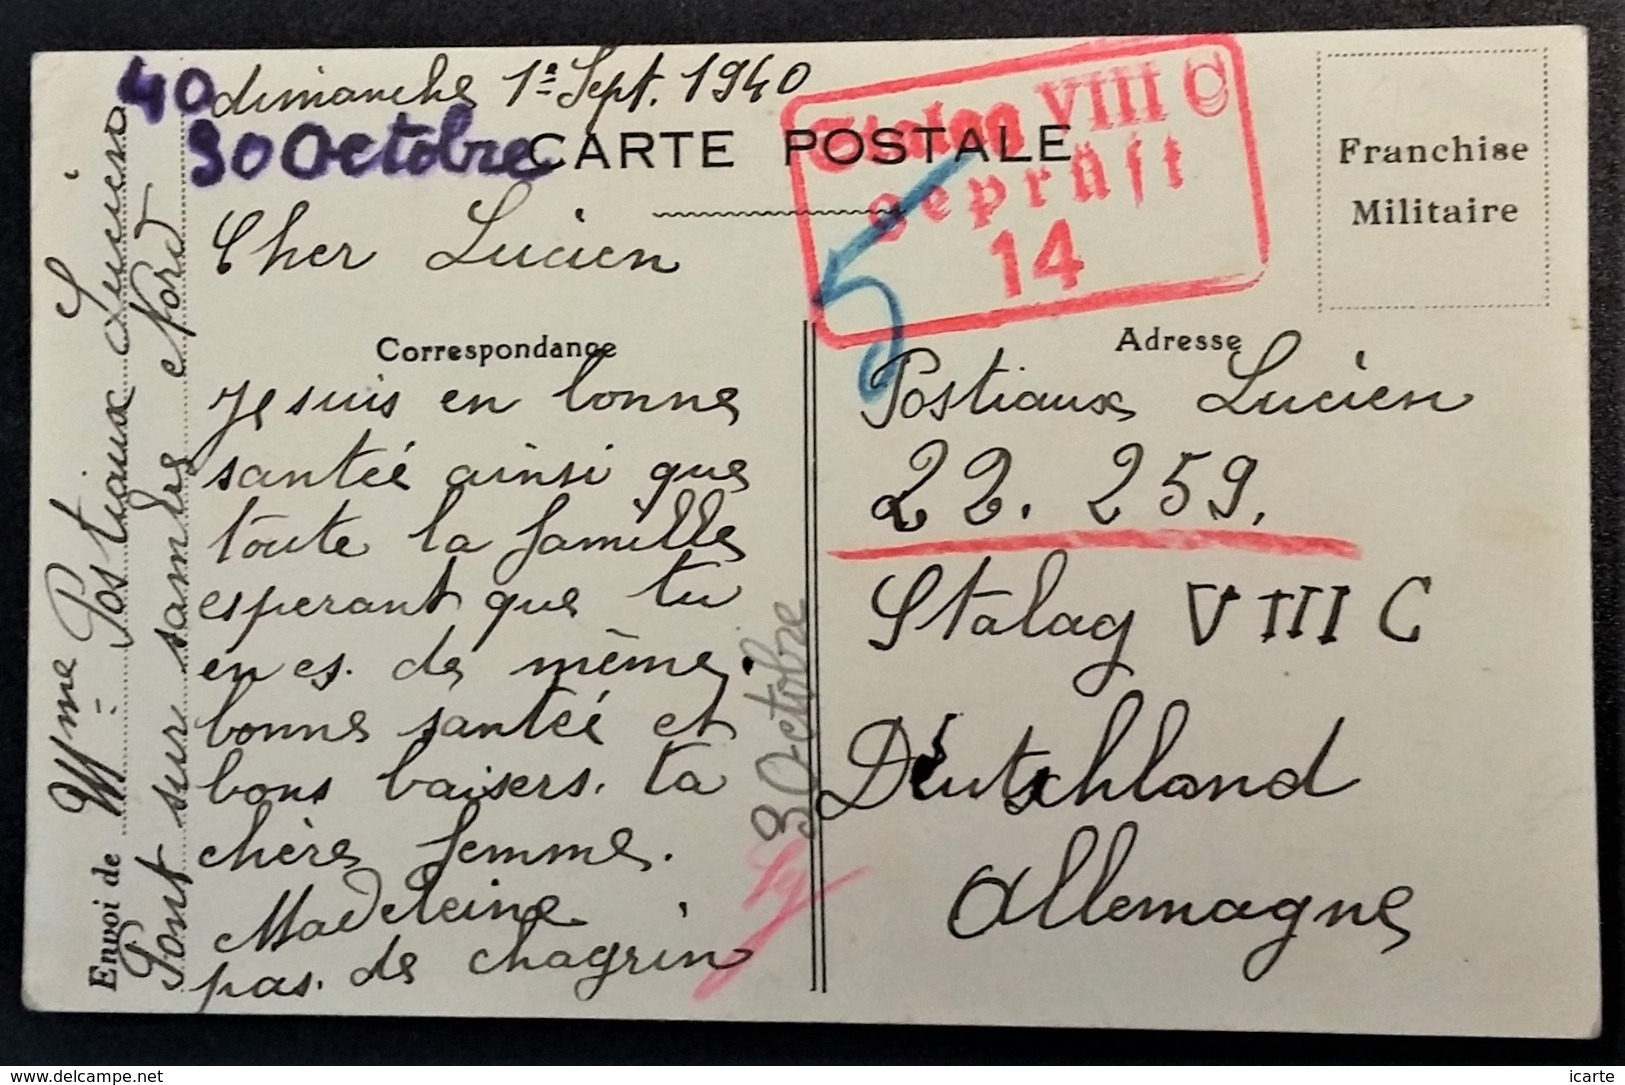 40 dimanche 1e Sept. 1940
30 Octobre
CARTE POSTALE
Stalag VIII C
geprüft
14
Franchise
Militaire
Cher Lucien
Correspondance
Je suis en bonne
santée ainsi que
toute la famille
esperant que tu
en es. de même.
bonne santée et
bons baisers. ta
chère femme.
Madeleine
pas. de chagrin
30ctobre
Adresse
Postiaux Lucien
22. 259.
Stalag VIII C
Deutschland
Allemagne
Envoi de Mme Postiaux Lucien à
Pont sur sambre Nord
https://www.delcampe.net
icarte